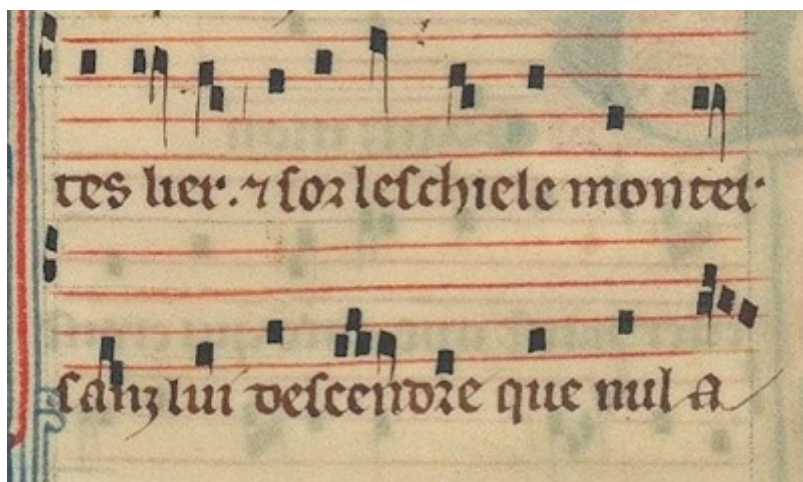 tes lier. ⁊ ſoꝛ leſchiele monter
ſanz lui deſcendꝛe que nul a